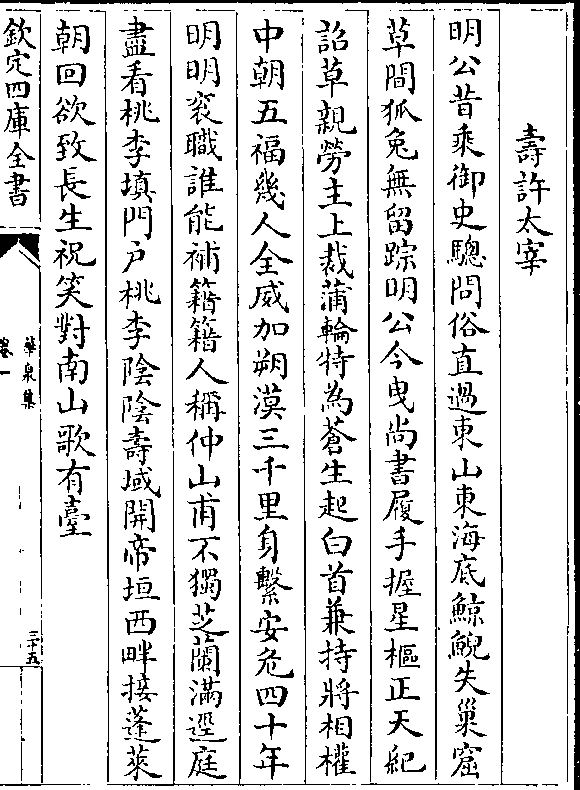 壽許太宰
明公昔乘御史驄問俗直過東山東海底鯨鯢失巢窟
草間狐兔無留踪明公今曳尚書履手握星樞正天紀
詔草親勞主上裁蒲輪特為蒼生起白首兼持將相權
中朝五福幾人全威加朔漠三千里身繫安危四十年
明明衮職誰能補籍籍人稱仲山甫不獨芝蘭滿逕庭
盡看桃李填門户桃李陰陰壽域開帝垣西畔接蓬萊
朝回欲致長生祝笑對南山歌有臺
欽定四庫全書
華泉集
卷一
三十五